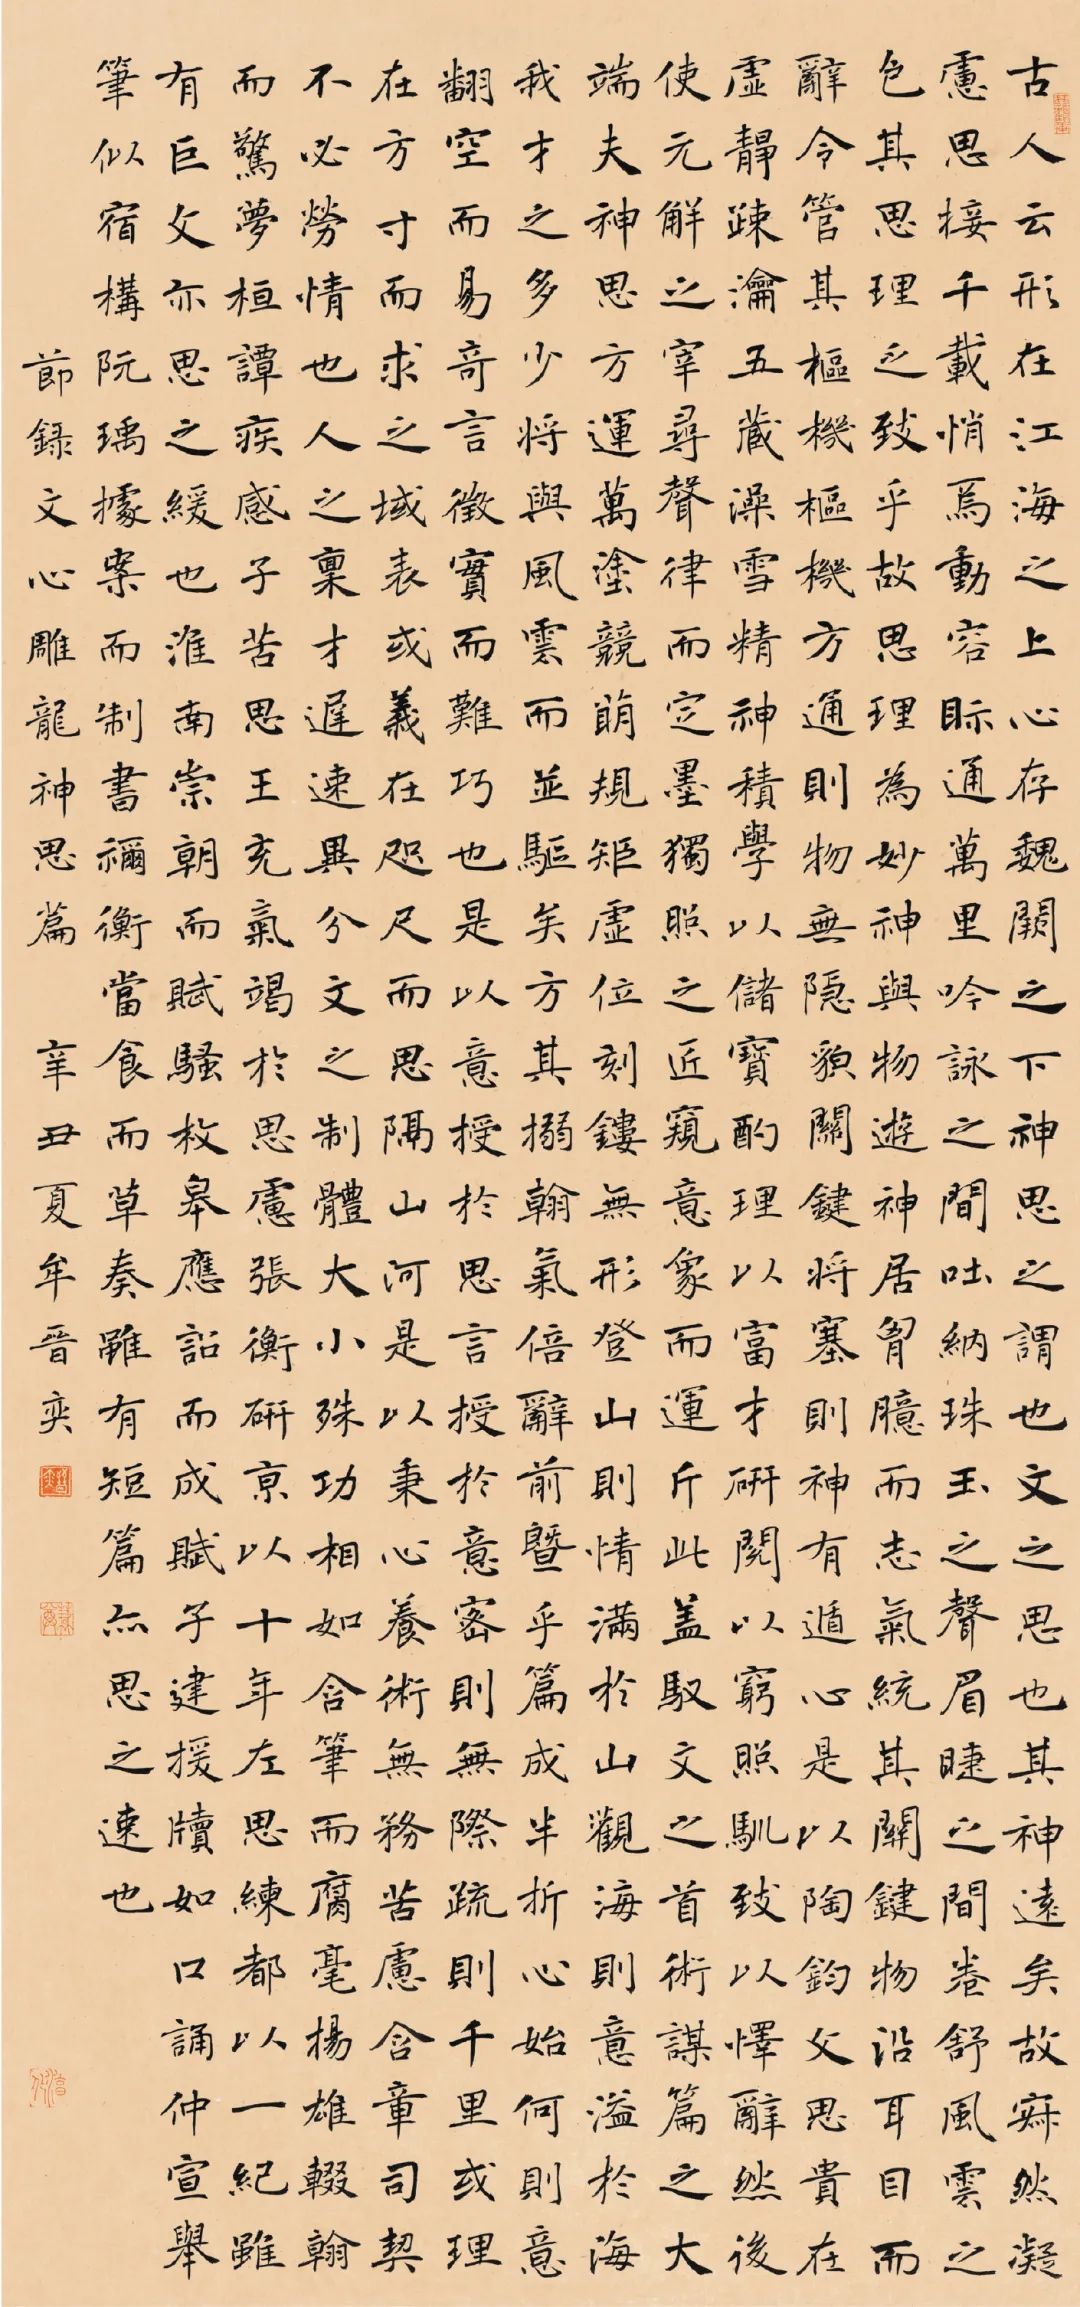 古人云形在江海之上心存魏闕之下神思之謂也文之思也其神遠矣故寂然凝
慮思接千載悄焉動容眎通萬里吟詠之間吐納珠玉之聲眉睫之間卷舒風雲之
色其思理之致乎故思理為妙神與物遊神居胷臆而志氣統其關鍵物沿耳目而
辭令管其樞機樞機方通則物無隱貌關鍵將塞則神有遁心是以陶鈞文思貴在
虛靜踈瀹五藏澡雪精神積學以儲寶酌理以富才研閱以窮照馴致以懌辭然後
使元解之宰尋聲律而定墨獨照之匠窺意象而運斤此蓋馭文之首術謀篇之大
端夫神思方運萬塗競萌規矩虛位刻鏤無形登山則情滿於山觀海則意溢於海
我才之多少將與風雲而並驅矣方其搦翰氣倍辭前暨乎篇成半折心始何則意
翻空而易奇言徵實而難巧也是以意授於思言授於意密則無際疏則千里或理
在方寸而求之域表或義在咫尺而思隔山河是以秉心養術無務苦慮含章司契
不必勞情也人之稟才遲速異分文之制體大小殊功相如含筆而腐毫揚雄輟翰
而驚夢桓譚疾感子苦思王充氣竭於思慮張衡研京以十年左思練都以一紀雖
有巨文亦思之緩也淮南崇朝而賦騷枚皋應詔而成賦子建援牘如口誦仲宣舉
筆似宿構阮瑀據案而制書禰衡當食而草奏雖有短篇亦思之速也
節録文心雕龍神思篇 辛丑夏牟晉奕